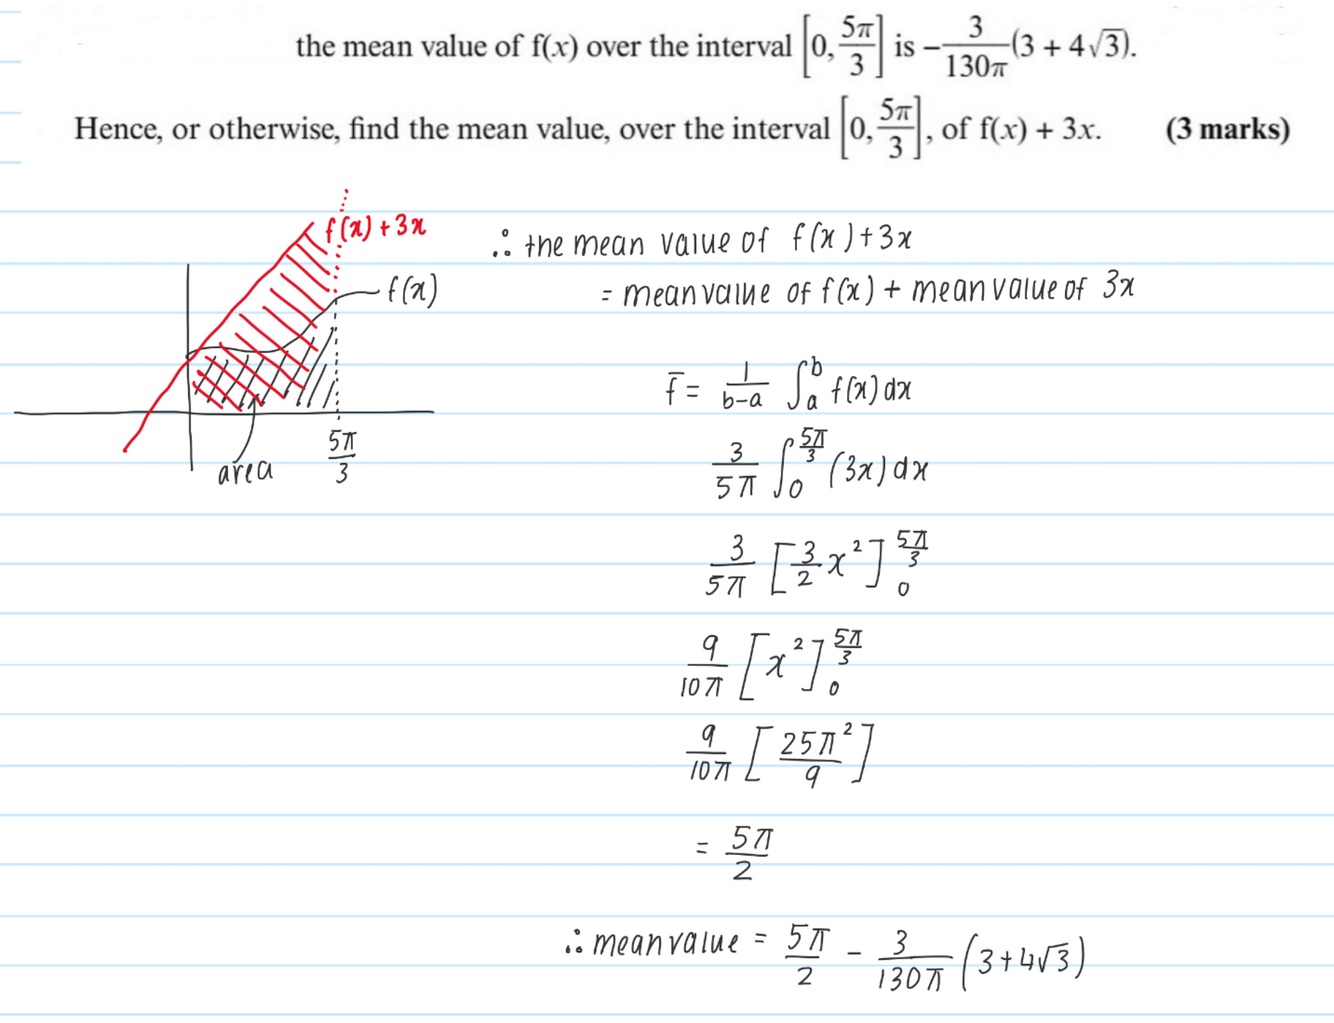 the mean value of f(x) over the interval [0, 5π/3] is −3/(130π)(3 + 4√3).
Hence, or otherwise, find the mean value, over the interval [0, 5π/3], of f(x) + 3x. (3 marks)
f(x) + 3x
f(x)
area
5π/3
∴ the mean value of f(x)+3x
= mean value of f(x) + mean value of 3x
f̄ = 1/(b−a) ∫_a^b f(x) dx
3/(5π) ∫_0^(5π/3) (3x) dx
3/(5π) [3/2 x²]_0^(5π/3)
9/(10π) [x²]_0^(5π/3)
9/(10π) [25π²/9]
= 5π/2
∴ mean value = 5π/2 − 3/(130π) (3+4√3)